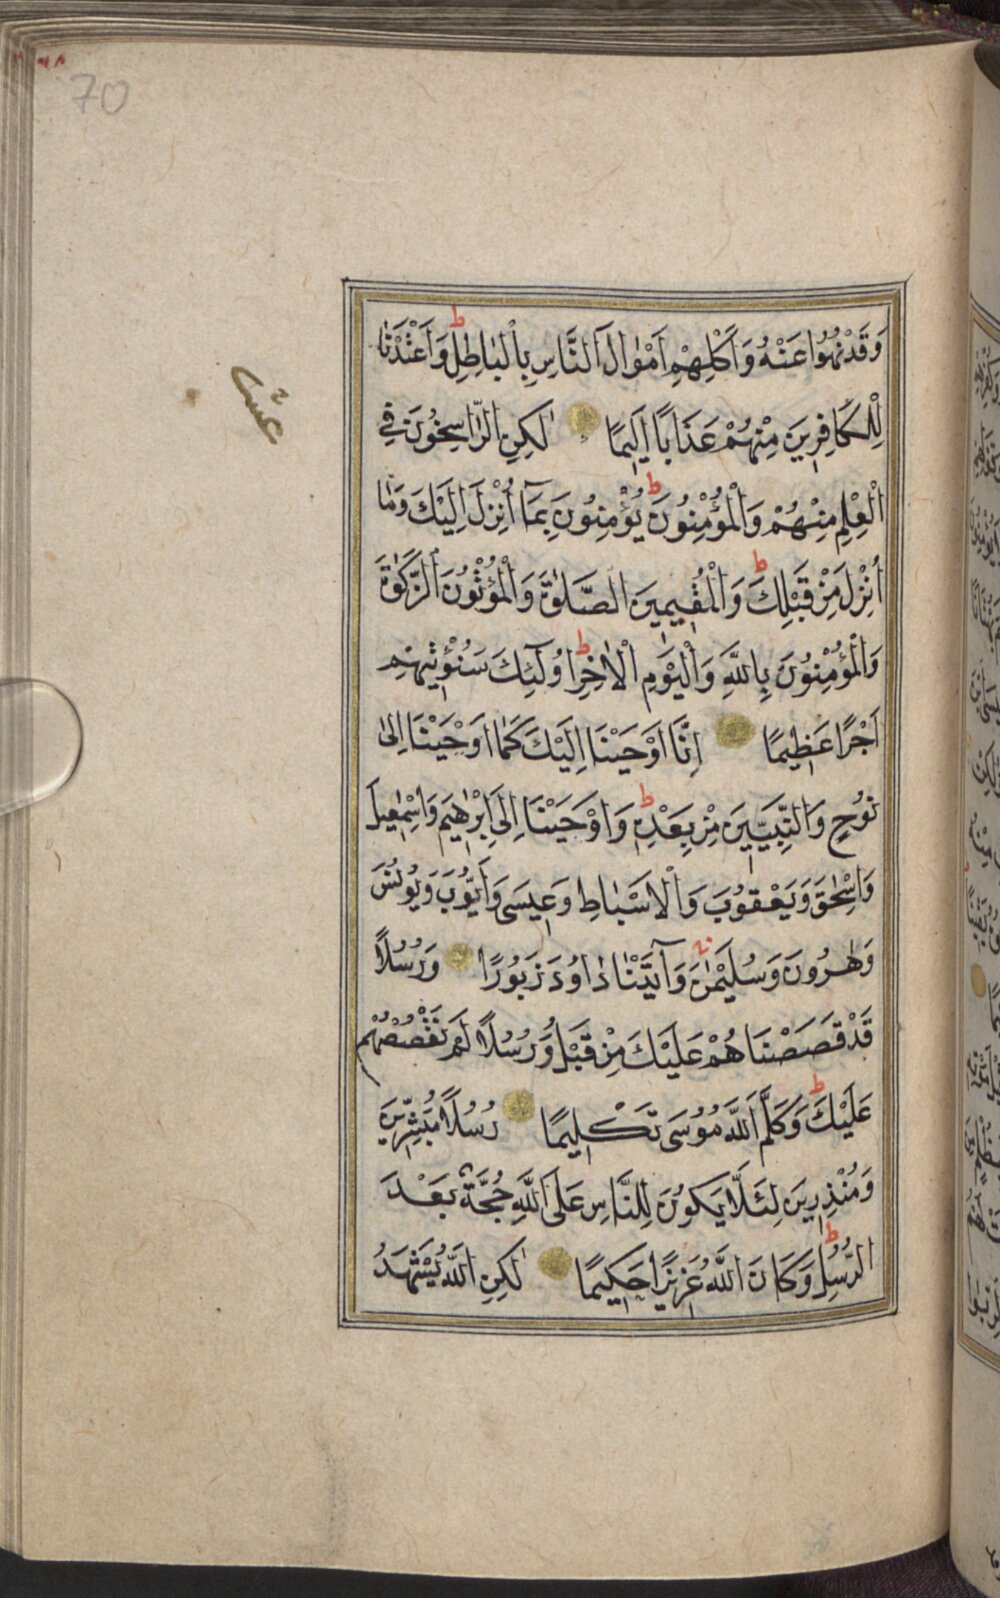 70
وَقَدْ نُهُوا عَنْهُ وَاَكْلِهِمْ اَمْوَالَ النَّاسِ بِالْبَاطِلِ ط وَاَعْتَدْنَا
لِلْكَافِرِينَ مِنْهُمْ عَذَابًا اَلِيمًا لٰكِنِ الرَّاسِخُونَ فِي
عشر
الْعِلْمِ مِنْهُمْ وَالْمُؤْمِنُونَ ط يُؤْمِنُونَ بِمَٓا اُنْزِلَ اِلَيْكَ وَمَا
اُنْزِلَ مِنْ قَبْلِكَ ط وَالْمُقِيمِينَ الصَّلٰوةَ وَالْمُؤْتُونَ الزَّكٰوةَ
وَالْمُؤْمِنُونَ بِاللّٰهِ وَالْيَوْمِ الْاٰخِرِ ط اُولٰٓئِكَ سَنُؤْتِيهِمْ
اَجْرًا عَظِيمًا اِنَّٓا اَوْحَيْنَا اِلَيْكَ كَمَا اَوْحَيْنَا اِلٰى
نُوحٍ وَالنَّبِيِّينَ مِنْ بَعْدِهِ ط وَاَوْحَيْنَا اِلٰى اِبْرٰهِيمَ وَاِسْمٰعِيلَ
وَاِسْحٰقَ وَيَعْقُوبَ وَالْاَسْبَاطِ وَعِيسَى وَاَيُّوبَ وَيُونُسَ
وَهٰرُونَ وَسُلَيْمٰنَ وَاٰتَيْنَا دَاوُدَ زَبُورًا وَرُسُلًا
قَدْ قَصَصْنَاهُمْ عَلَيْكَ مِنْ قَبْلُ وَرُسُلًا لَمْ نَقْصُصْهُمْ
عَلَيْكَ ط وَكَلَّمَ اللّٰهُ مُوسَى تَكْلِيمًا رُسُلًا مُبَشِّرِينَ
وَمُنْذِرِينَ لِئَلَّا يَكُونَ لِلنَّاسِ عَلَى اللّٰهِ حُجَّةٌ بَعْدَ
الرُّسُلِ ط وَكَانَ اللّٰهُ عَزِيزًا حَكِيمًا لٰكِنِ اللّٰهُ يَشْهَدُ